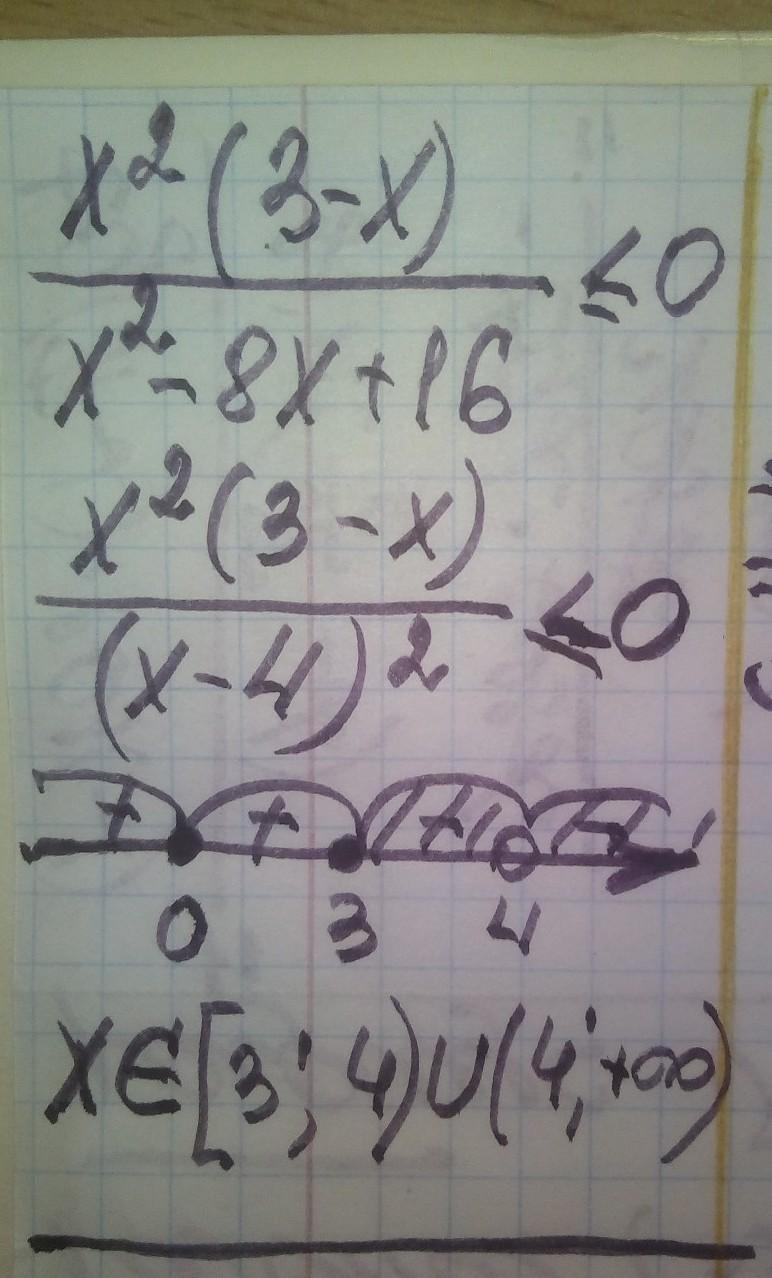 x²(3-x)
≤0
x²-8x+16
x²(3-x)
≤0
(x-4)²
+ + - -
0 3 4
x∈[3;4)∪(4;+∞)